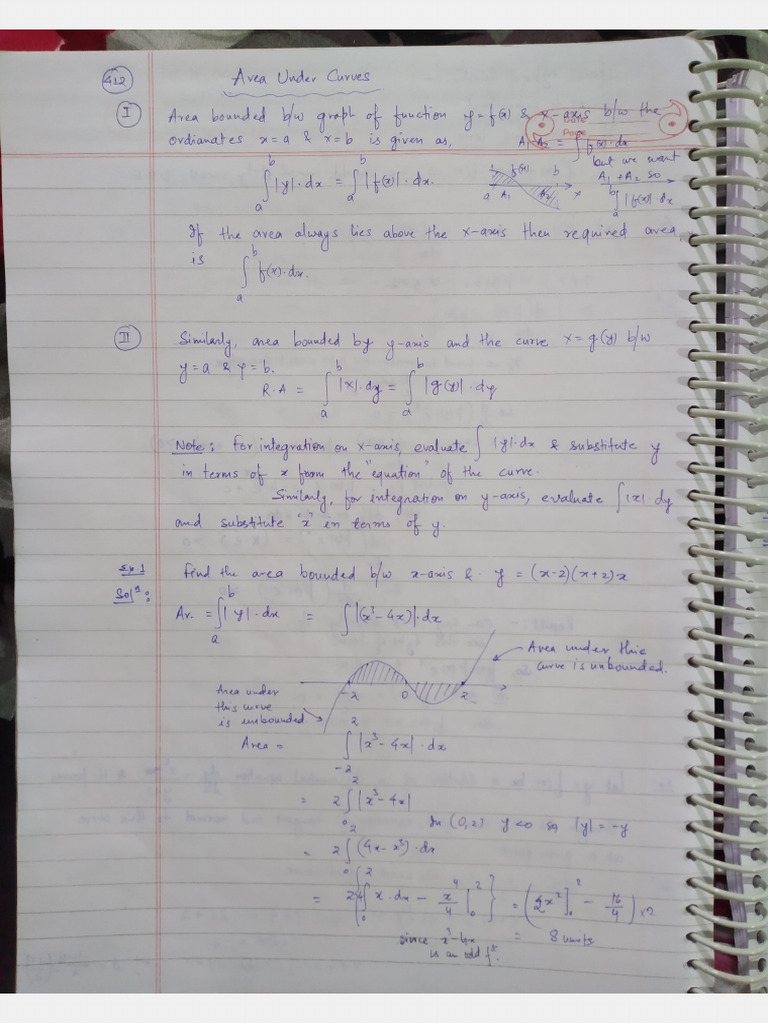 412
Area Under Curves
I Area bounded b/w graph of function y=f(x) & x-axis b/w the
Date
Page
ordianates x=a & x=b is given as, A₁-A₂ = ∫f(x)·dx
but we want
A₁+A₂ so
∫_a^b |y|·dx = ∫_a^b |f(x)|·dx.
f(x) a A₁ A₂ b x
∫_a^b |f(x)|·dx
If the area always lies above the x-axis then required area,
is ∫_a^b f(x)·dx.
II Similarly, area bounded by y-axis and the curve x=g(y) b/w
y=a & y=b.
R.A = ∫_a^b |x|·dy = ∫_a^b |g(y)|·dy
Note: For integration on x-axis, evaluate ∫|y|·dx & substitute y
in terms of x from the "equation" of the curve.
Similarly, for integration on y-axis, evaluate ∫|x|·dy
and substitute 'x' in terms of y.
Ex.1 Find the area bounded b/w x-axis & y = (x-2)(x+2)x
Solⁿ: Ar. = ∫_a^b |y|·dx = ∫|(x³-4x)|·dx
Area under this
curve is unbounded.
-2 0 2
Area under
this curve
is unbounded
Area = ∫_{-2}^2 |x³-4x|·dx
= 2∫_0^2 |x³-4x|
In (0,2) y<0 so |y|=-y
= 2∫_0^2 (4x-x³)·dx
= 2{4∫_0^2 x·dx - x⁴/4]_0^2} = (4/2 x²]_0^2 - 16/4)×2
since x³-4x = 8 units
is an odd fⁿ.